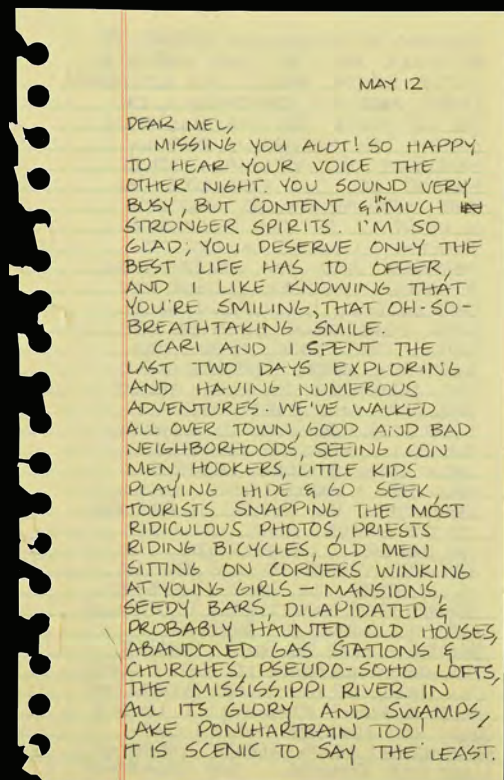 MAY 12
DEAR MEL,
MISSING YOU ALOT! SO HAPPY
TO HEAR YOUR VOICE THE
OTHER NIGHT. YOU SOUND VERY
BUSY, BUT CONTENT & IN MUCH
STRONGER SPIRITS. I'M SO
GLAD; YOU DESERVE ONLY THE
BEST LIFE HAS TO OFFER,
AND I LIKE KNOWING THAT
YOU'RE SMILING, THAT OH-SO-
BREATHTAKING SMILE.
CARI AND I SPENT THE
LAST TWO DAYS EXPLORING
AND HAVING NUMEROUS
ADVENTURES. WE'VE WALKED
ALL OVER TOWN, GOOD AND BAD
NEIGHBORHOODS, SEEING CON
MEN, HOOKERS, LITTLE KIDS
PLAYING HIDE & GO SEEK,
TOURISTS SNAPPING THE MOST
RIDICULOUS PHOTOS, PRIESTS
RIDING BICYCLES, OLD MEN
SITTING ON CORNERS WINKING
AT YOUNG GIRLS — MANSIONS,
SEEDY BARS, DILAPIDATED &
PROBABLY HAUNTED OLD HOUSES,
ABANDONED GAS STATIONS &
CHURCHES, PSEUDO-SOHO LOFTS,
THE MISSISSIPPI RIVER IN
ALL ITS GLORY AND SWAMPS,
LAKE PONCHARTRAIN TOO!
IT IS SCENIC TO SAY THE LEAST.